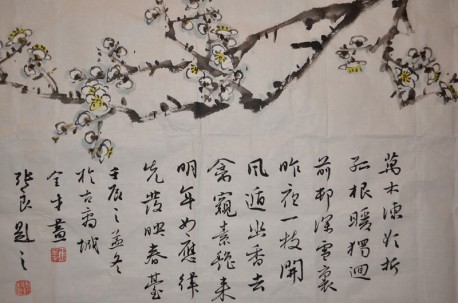 萬木凍欲折
孤根暖獨迴
前邨深雪裏
昨夜一枝開
風遞幽香去
禽窺素艷來
明年如應律
先發映春臺
壬辰之孟冬
於古禹城
全才畫
張良題之